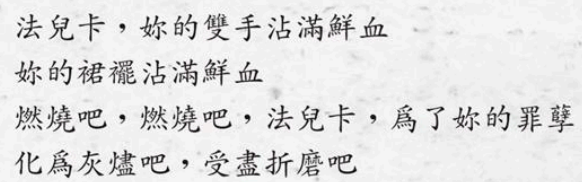 法兒卡，妳的雙手沾滿鮮血
妳的裙襬沾滿鮮血
燃燒吧，燃燒吧，法兒卡，爲了妳的罪孽
化爲灰燼吧，受盡折磨吧